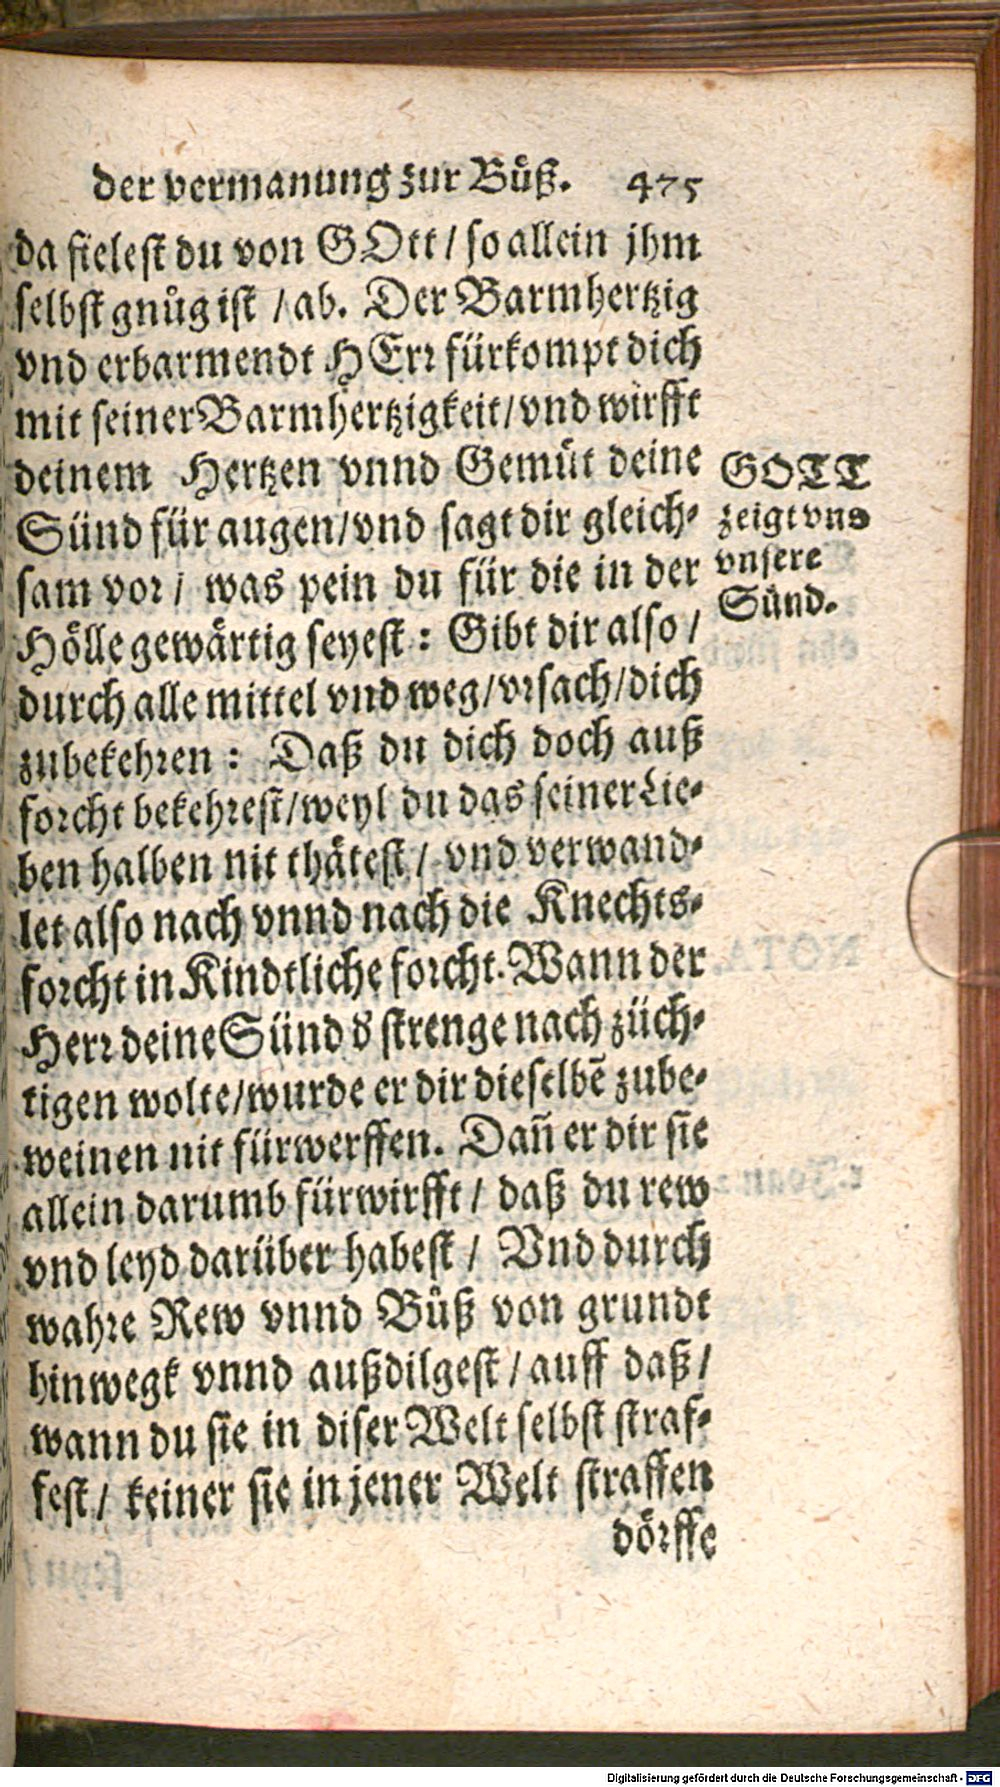 der vermanung zur Bůß. 475
da fielest du von GOtt / so allein jhm
selbst gnůg ist / ab. Der Barmhertzig
vnd erbarmendt HErr fürkompt dich
mit seiner Barmhertzigkeit / vnd wirfft
deinem Hertzen vnnd Gemüt deine
Sünd für augen / vnd sagt dir gleich-
sam vor / was pein du für die in der
Hölle gewärtig seyest : Gibt dir also /
durch alle mittel vnd weg / vrsach / dich
zubekehren : Daß du dich doch auß
forcht bekehrest / weyl du das seiner Lie-
ben halben nit thätest / vnd verwand-
let also nach vnnd nach die Knechts-
forcht in Kindtliche forcht. Wann der
Herr deine Sünd d strenge nach züch-
tigen wolte / wurde er dir dieselbē zube-
weinen nit fürwerffen. Dañ er dir sie
allein darumb fürwirfft / daß du rew
vnd leyd darüber habest / Vnd durch
wahre Rew vnnd Bůß von grundt
hinwegk vnnd außdilgest / auff daß /
wann du sie in diser Welt selbst straf-
fest / keiner sie in jener Welt straffen
dörffe
GOTT
zeigt vns
vnsere
Sünd.
Digitalisierung gefördert durch die Deutsche Forschungsgemeinschaft - DFG